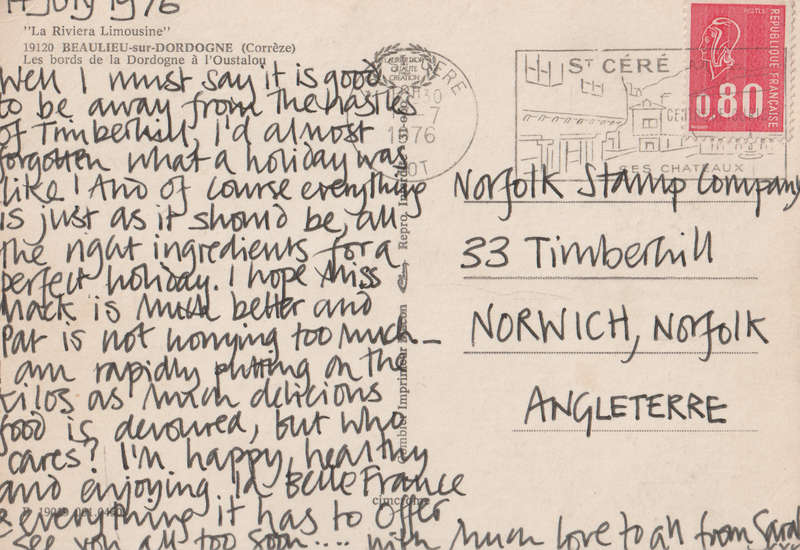 14 July 1976
"La Riviera Limousine"
19120 BEAULIEU-sur-DORDOGNE (Corrèze)
Les bords de la Dordogne à l'Oustalou
Well I must say it is good
to be away from the hastles
of Timberhill, I'd almost
forgotten what a holiday was
like! And of course everything
is just as it should be, all
the right ingredients for a
perfect holiday. I hope Miss
Mack is much better and
Pat is not worrying too much_
I am rapidly putting on the
kilos as much delicious
food is devoured, but who
cares? I'm happy, healthy
and enjoying la Belle France
& everything it has to offer
see you all too soon.... with much love to all from Sarah
XXX
CÉRÉ
-7
1976
LOT
ST CÉRÉ
SES CHATEAUX
POSTES
RÉPUBLIQUE FRANÇAISE
0,80
Norfolk Stamp Company
33 Timberhill
NORWICH, Norfolk
ANGLETERRE
Combier Imprimeur Mâcon
Repro.
cim